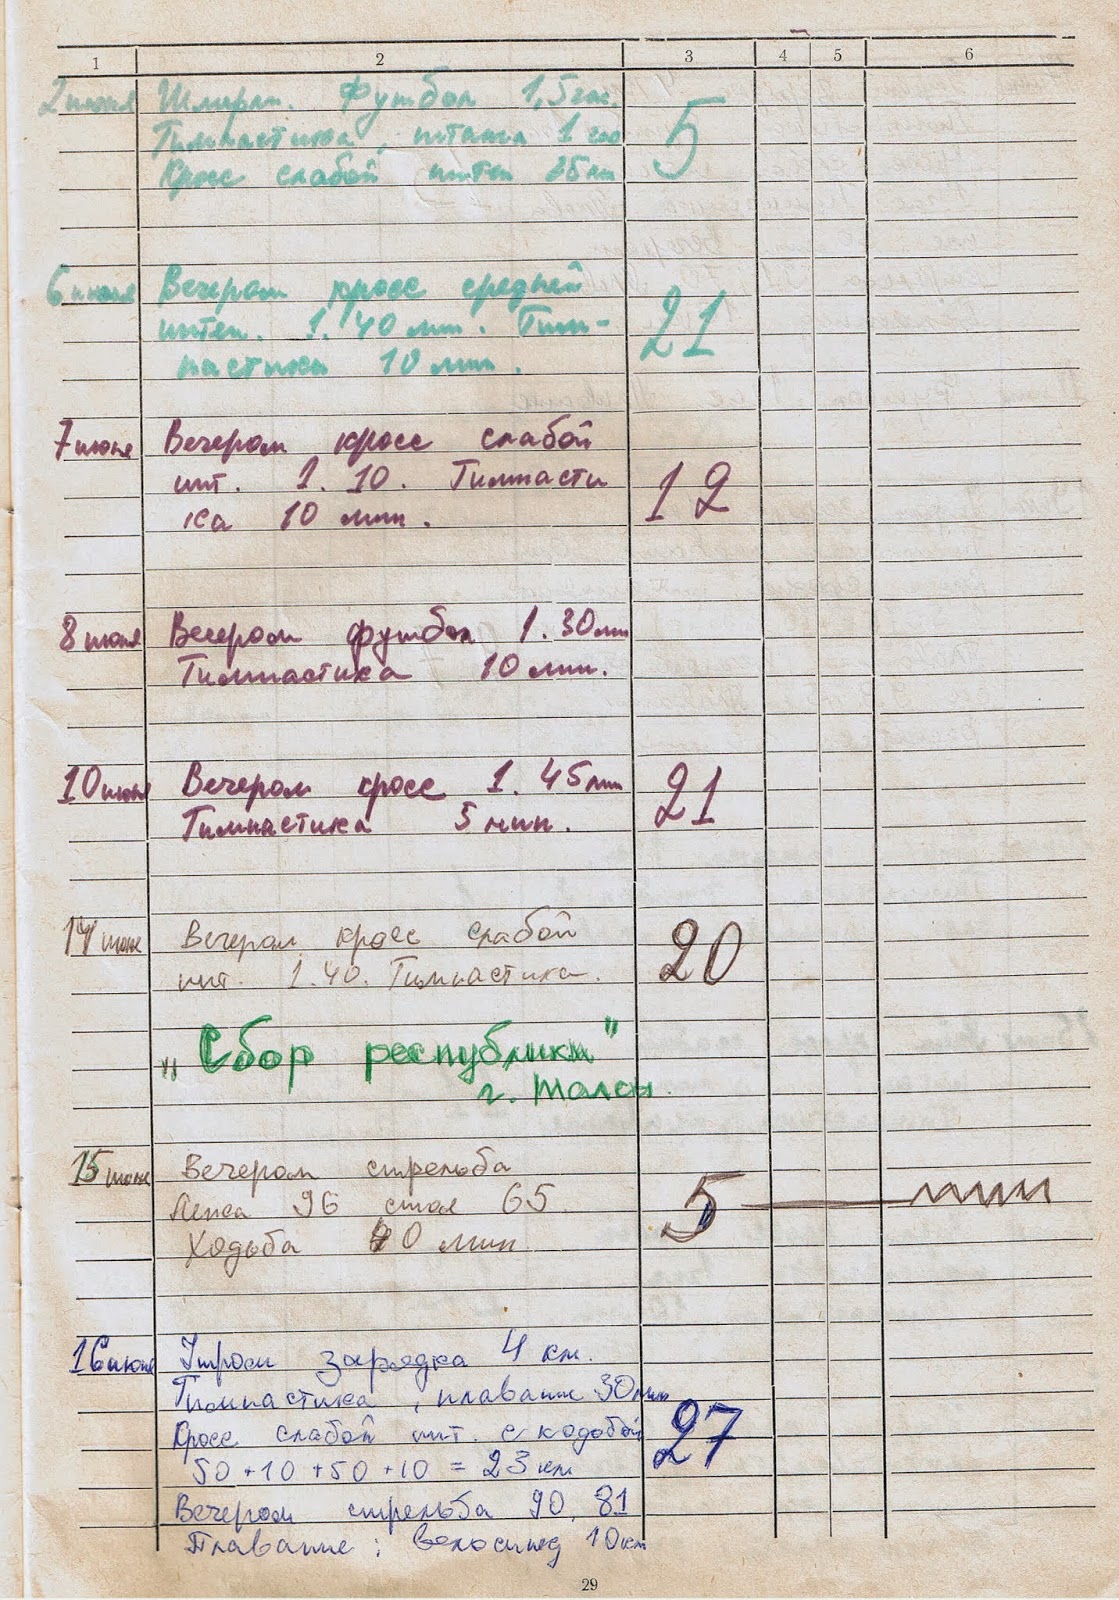 1 2 3 4 5 6
2 июня Футбол 1,5 час.
Гимнастика, штанга 1 час 5
Кросс слабой интен 25 мин
6 июня Вечером кросс средней
интен. 1.40 мин. Гим- 21
настика 10 мин.
7 июня Вечером кросс слабой
инт. 1.10. Гимнасти 12
ка 10 мин.
8 июня Вечером футбол 1.30 мин
Гимнастика 10 мин.
10 июня Вечером кросс 1.45 мин 21
Гимнастика 5 мин.
14 июня Вечером кросс слабой 20
инт. 1.40. Гимнастика.
„Сбор республики"
г. Талсы.
15 июня Вечером стрельба
Лежа 96 стоя 65 5
Ходьба 90 мин
16 июня Утром зарядка 4 км.
Гимнастика, плавание 30 мин
Кросс слабой инт. с ходьбой 27
50 + 10 + 50 + 10 = 23 км
Вечером стрельба 90, 81
Плавание; велосипед 10 км
29